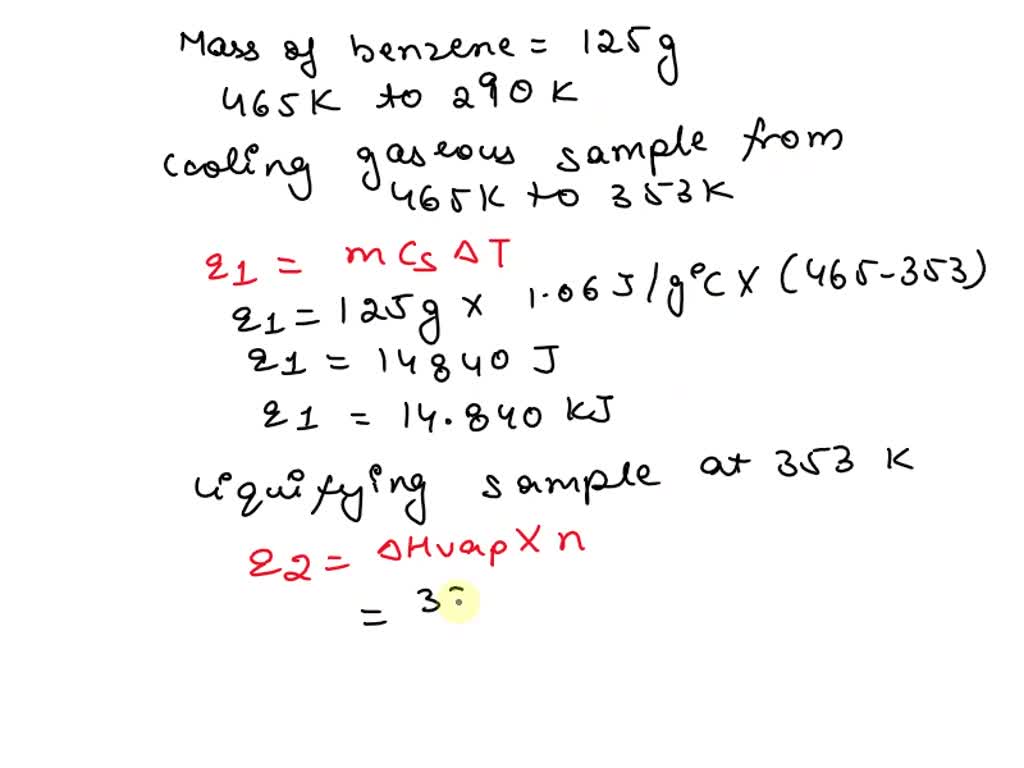 Mass of benzene = 125g
465K to 290K
cooling gaseous sample from
465K to 353K
q1 = mCsΔT
q1 = 125g × 1.06J/g°C × (465-353)
q1 = 14840 J
q1 = 14.840 KJ
liquifying sample at 353 K
q2 = ΔHvap × n
= 3